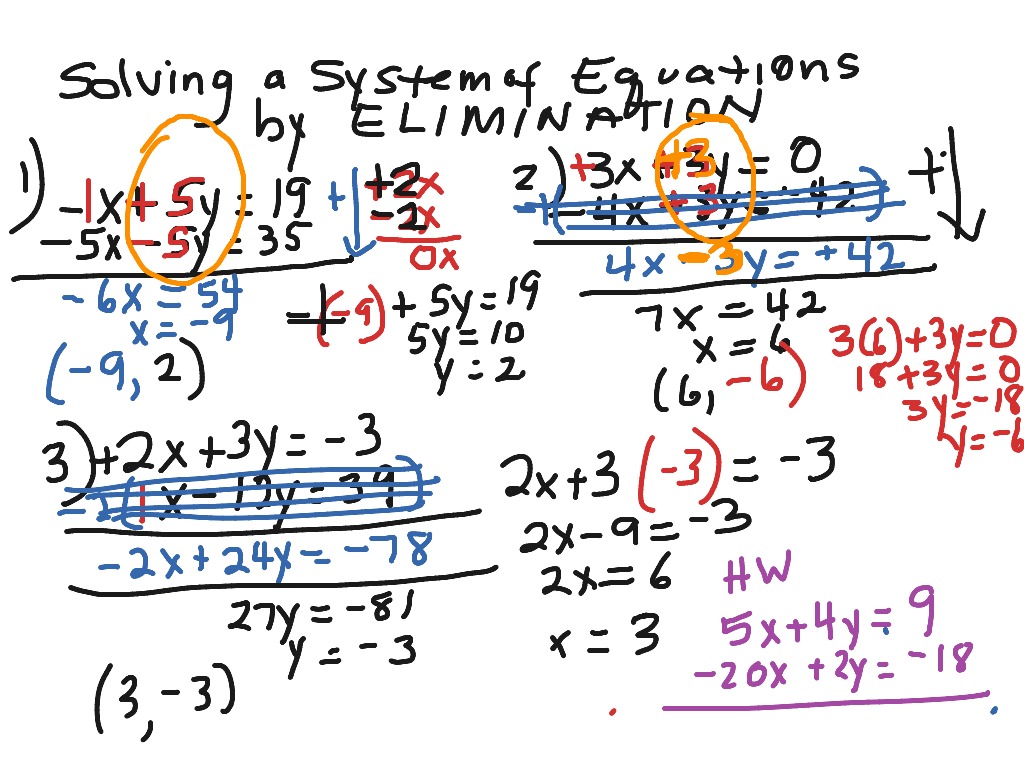 Solving a System of Equations
by ELIMINATION
1)
-1x + 5y = 19
-5x - 5y = 35
-6x = 54
x = -9
(-9, 2)
+
+2x
-2x
0x
-1(-9) + 5y = 19
5y = 10
y = 2
2) +3x +3y = 0
-1(-4x +3y = -42)
+
4x - 3y = +42
7x = 42
x = 6
(6, -6)
3(6)+3y=0
18+3y=0
3y=-18
y=-6
3) +2x + 3y = -3
-2(1x - 12y = 39)
-2x + 24y = -78
27y = -81
y = -3
(3, -3)
2x+3(-3) = -3
2x-9 = -3
2x = 6
x = 3
HW
5x+4y = 9
-20x +2y = -18